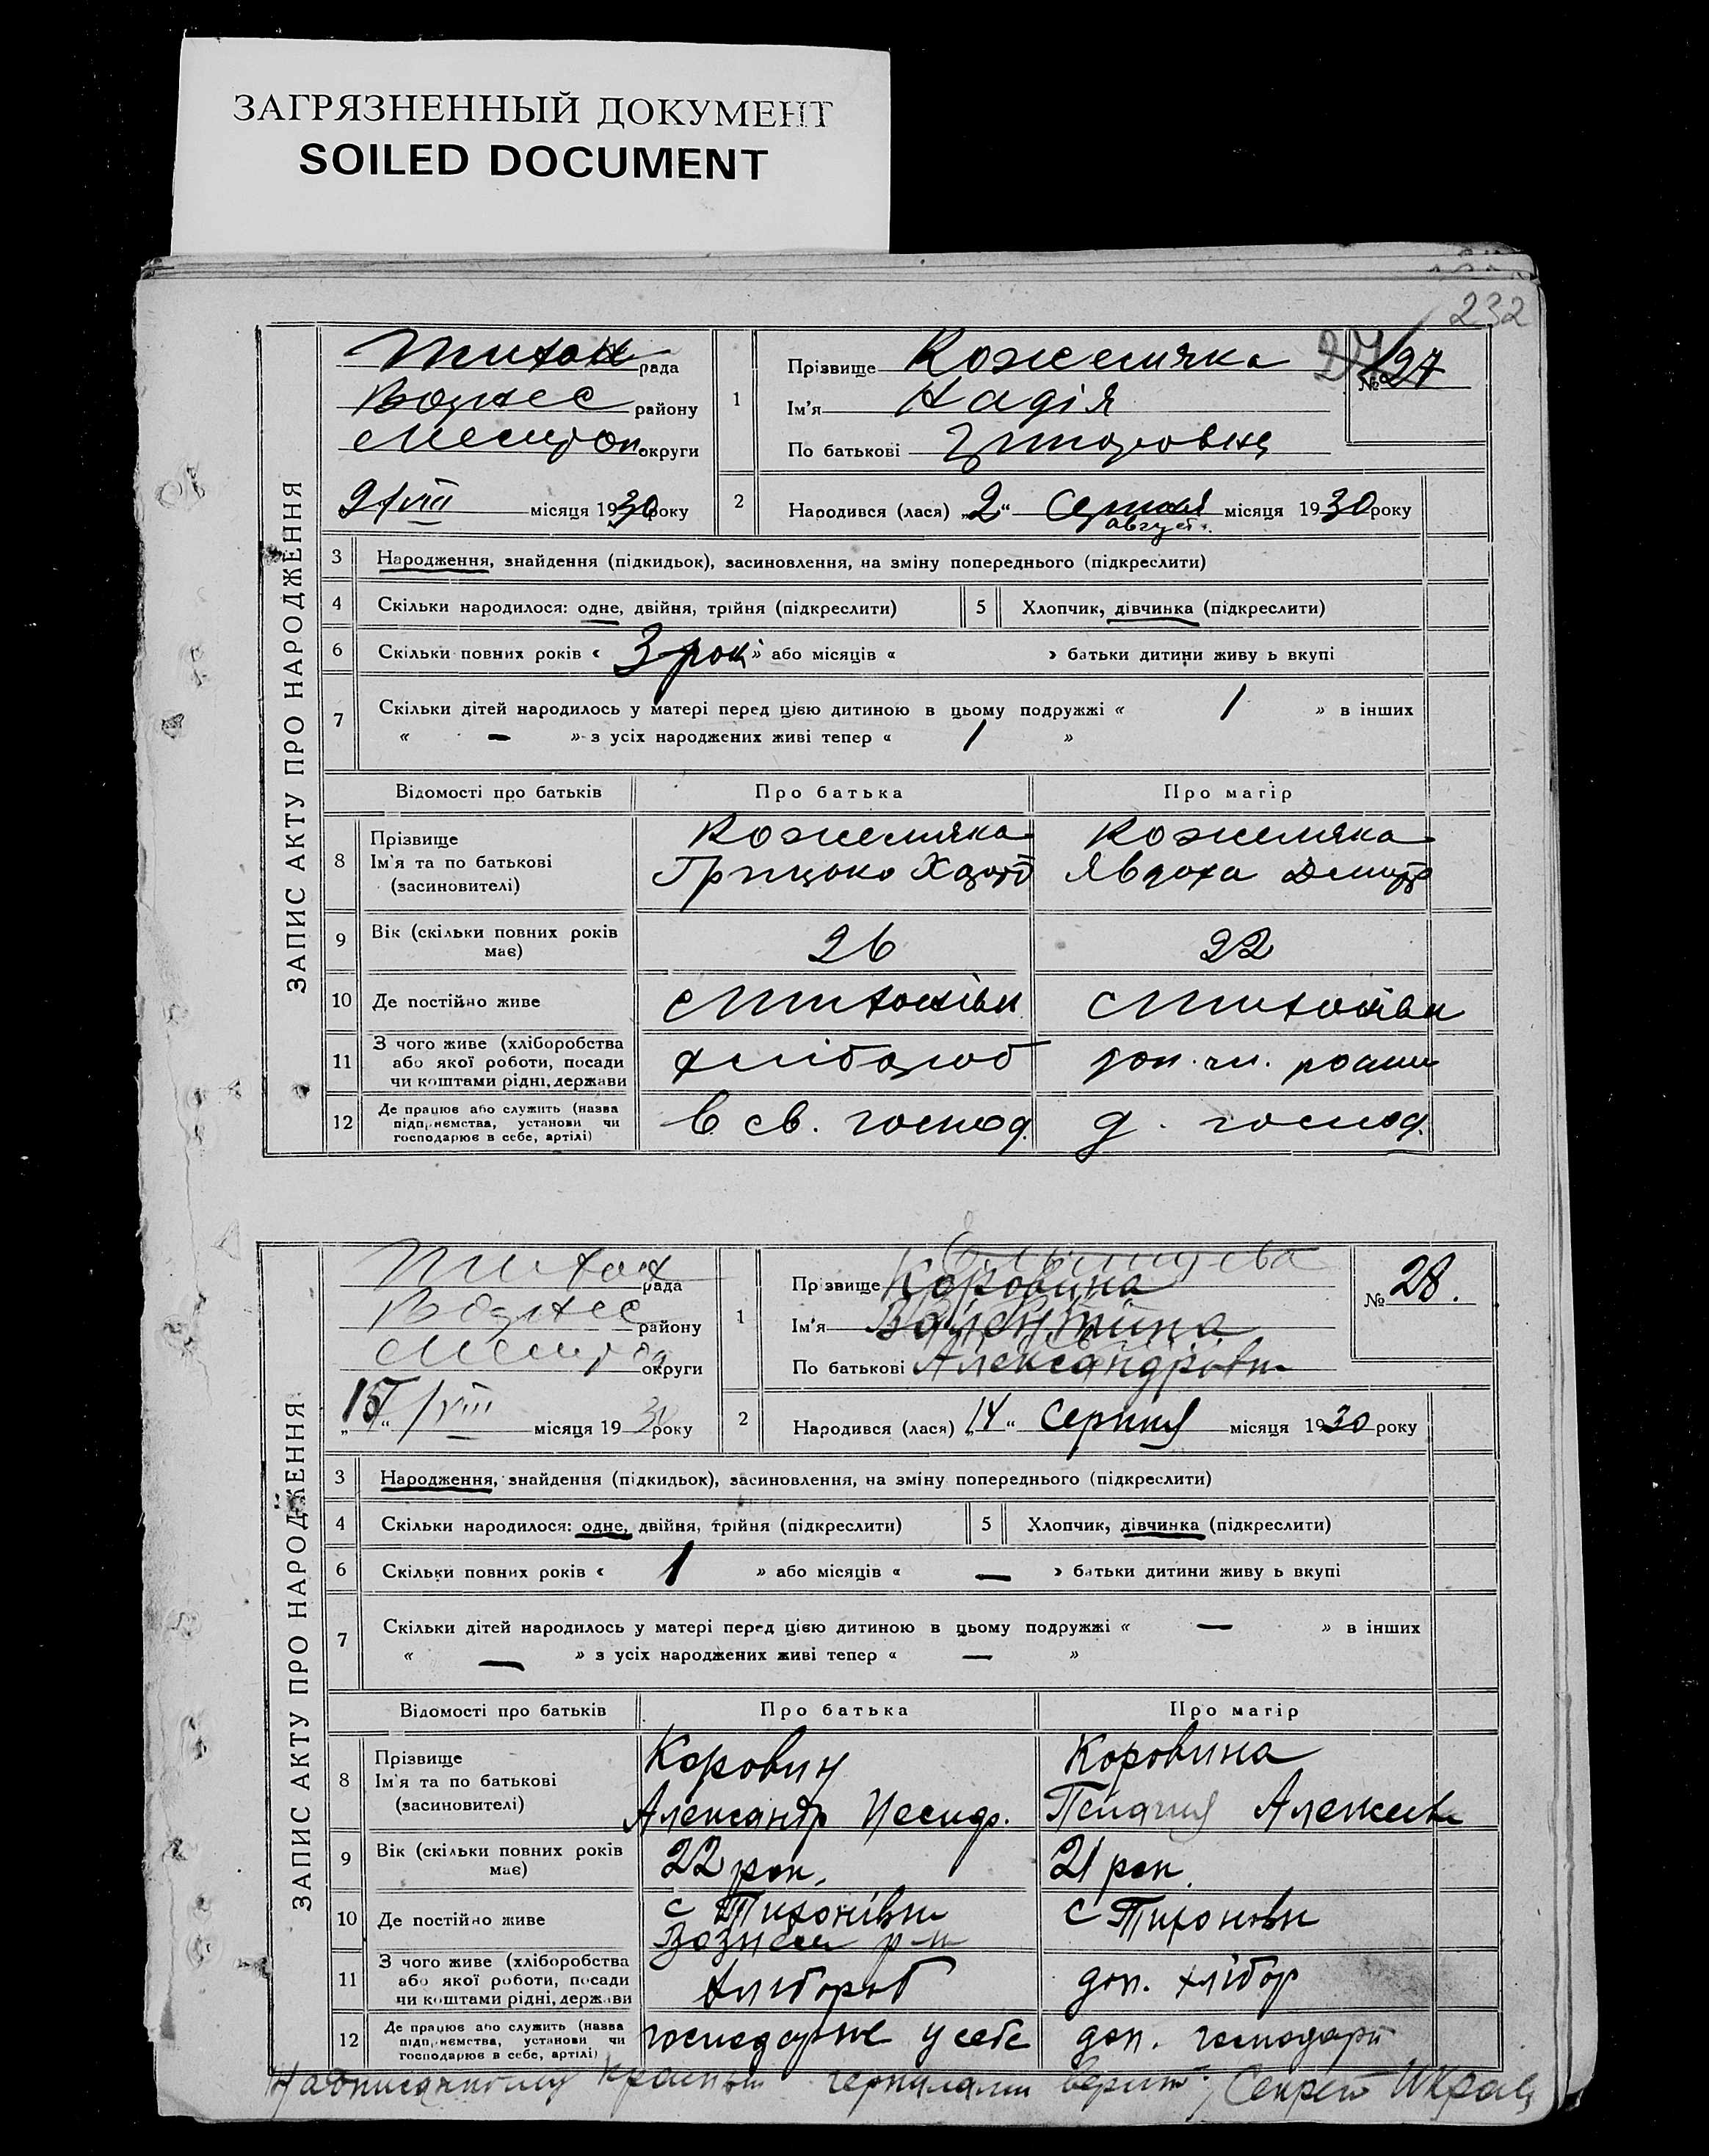 ЗАГРЯЗНЕННЫЙ ДОКУМЕНТ
SOILED DOCUMENT
232
ЗАПИС АКТУ ПРО НАРОДЖЕННЯ
Тихон рада
Вознес району
Мелітоп округи
9/VIII місяця 1930 року
1 Прізвище Кожемяка
Ім'я Надія
По батькові
№ 27
2 Народився (лася) „2“ Серпня місяця 1930 року
август
3 Народження, знайдення (підкидьок), засиновлення, на зміну попереднього (підкреслити)
4 Скільки народилося: одне, двійня, трійня (підкреслити) 5 Хлопчик, дівчинка (підкреслити)
6 Скільки повних років « 3 рок » або місяців « » батьки дитини живу ь вкупі
7 Скільки дітей народилось у матері перед цією дитиною в цьому подружжі « 1 » в інших
« — » з усіх народжених живі тепер « 1 »
Відомості про батьків Про батька Про матір
8 Прізвище Кожемяка Кожемяка
Ім'я та по батькові Грицько Явдоха Дмитр
(засиновителі)
9 Вік (скільки повних років 26 22
має)
10 Де постійно живе с Тихонівки с Тихонівки
11 З чого живе (хліборобства
або якої роботи, посади хлібороб доп. чл.
чи коштами рідні, держави
12 Де працює або служить (назва
підприємства, установи чи в св. господ. д. господ.
господарює в себе, артілі)
ЗАПИС АКТУ ПРО НАРОДЖЕННЯ
Тихон рада
Вознес району
Мелітоп округи
„15“/VIII місяця 1930 року
1 Прізвище Коровина
Ім'я Валентина
По батькові Александровн
№ 28.
2 Народився (лася) „14“ Серпня місяця 1930 року
3 Народження, знайдення (підкидьок), засиновлення, на зміну попереднього (підкреслити)
4 Скільки народилося: одне, двійня, трійня (підкреслити) 5 Хлопчик, дівчинка (підкреслити)
6 Скільки повних років « 1 » або місяців « — » батьки дитини живу ь вкупі
7 Скільки дітей народилось у матері перед цією дитиною в цьому подружжі « — » в інших
« — » з усіх народжених живі тепер « — »
Відомості про батьків Про батька Про матір
8 Прізвище Коровин Коровина
Ім'я та по батькові
(засиновителі) Александр Пелагия Алексеев
9 Вік (скільки повних років 22 рок. 21 рок.
має)
10 Де постійно живе с Тихонівки с Тихоновки
Вознесен р-н
11 З чого живе (хліборобства
або якої роботи, посади хлібороб доп. хлібор
чи коштами рідні, держави
12 Де працює або служить (назва
підприємства, установи чи господарює у себе доп. господарт
господарює в себе, артілі)
Надписанному красным чернилами верит Секрет